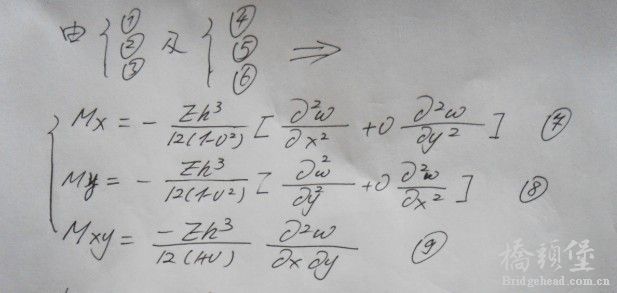 由 { ① ② ③ 及 { ④ ⑤ ⑥ ⇒
Mx = - Eh³/12(1-υ²) [ ∂²ω/∂x² + υ ∂²ω/∂y² ] ⑦
My = - Eh³/12(1-υ²) [ ∂²ω/∂y² + υ ∂²ω/∂x² ] ⑧
Mxy = -Eh³/12(1+υ) ∂²ω/∂x∂y ⑨
橋頭堡
Bridgehead.com.cn